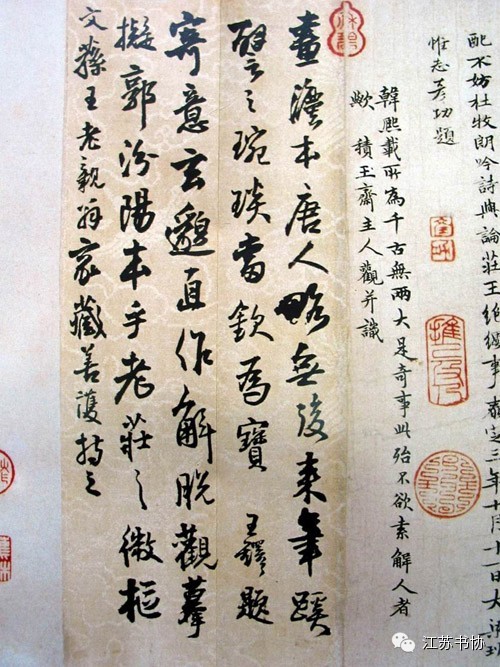 配不妨杜牧朗吟詩與論莊王絕纓事泰定三年十月十一日大梁班
惟志彥功題
韓熙載所為千古無兩大是奇事此殆不欲索解人者
歟 積玉齋主人觀并識
畫灋本唐人略無後來筆蹊
譬之琬琰當欽為寶 王鐸題
寄意玄邈直作解脫觀摹
擬郭汾陽本乎老莊之微樞
文蓀王老親翁家藏善護持之
江苏书协